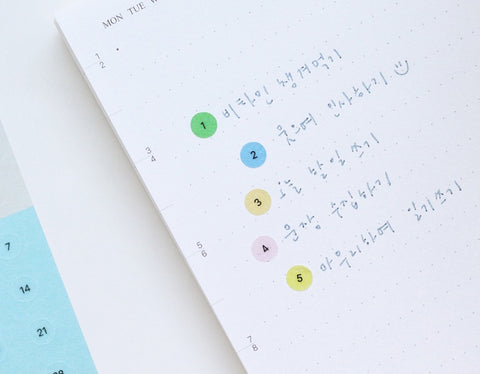 MON TUE
1
2
1 비타민 챙겨먹기
3
4
2 웃으며 인사하기
3 오늘 할 일 쓰기
5
6
4 문장 수집하기
5 마무리하며 일기쓰기
7
8
7
14
21